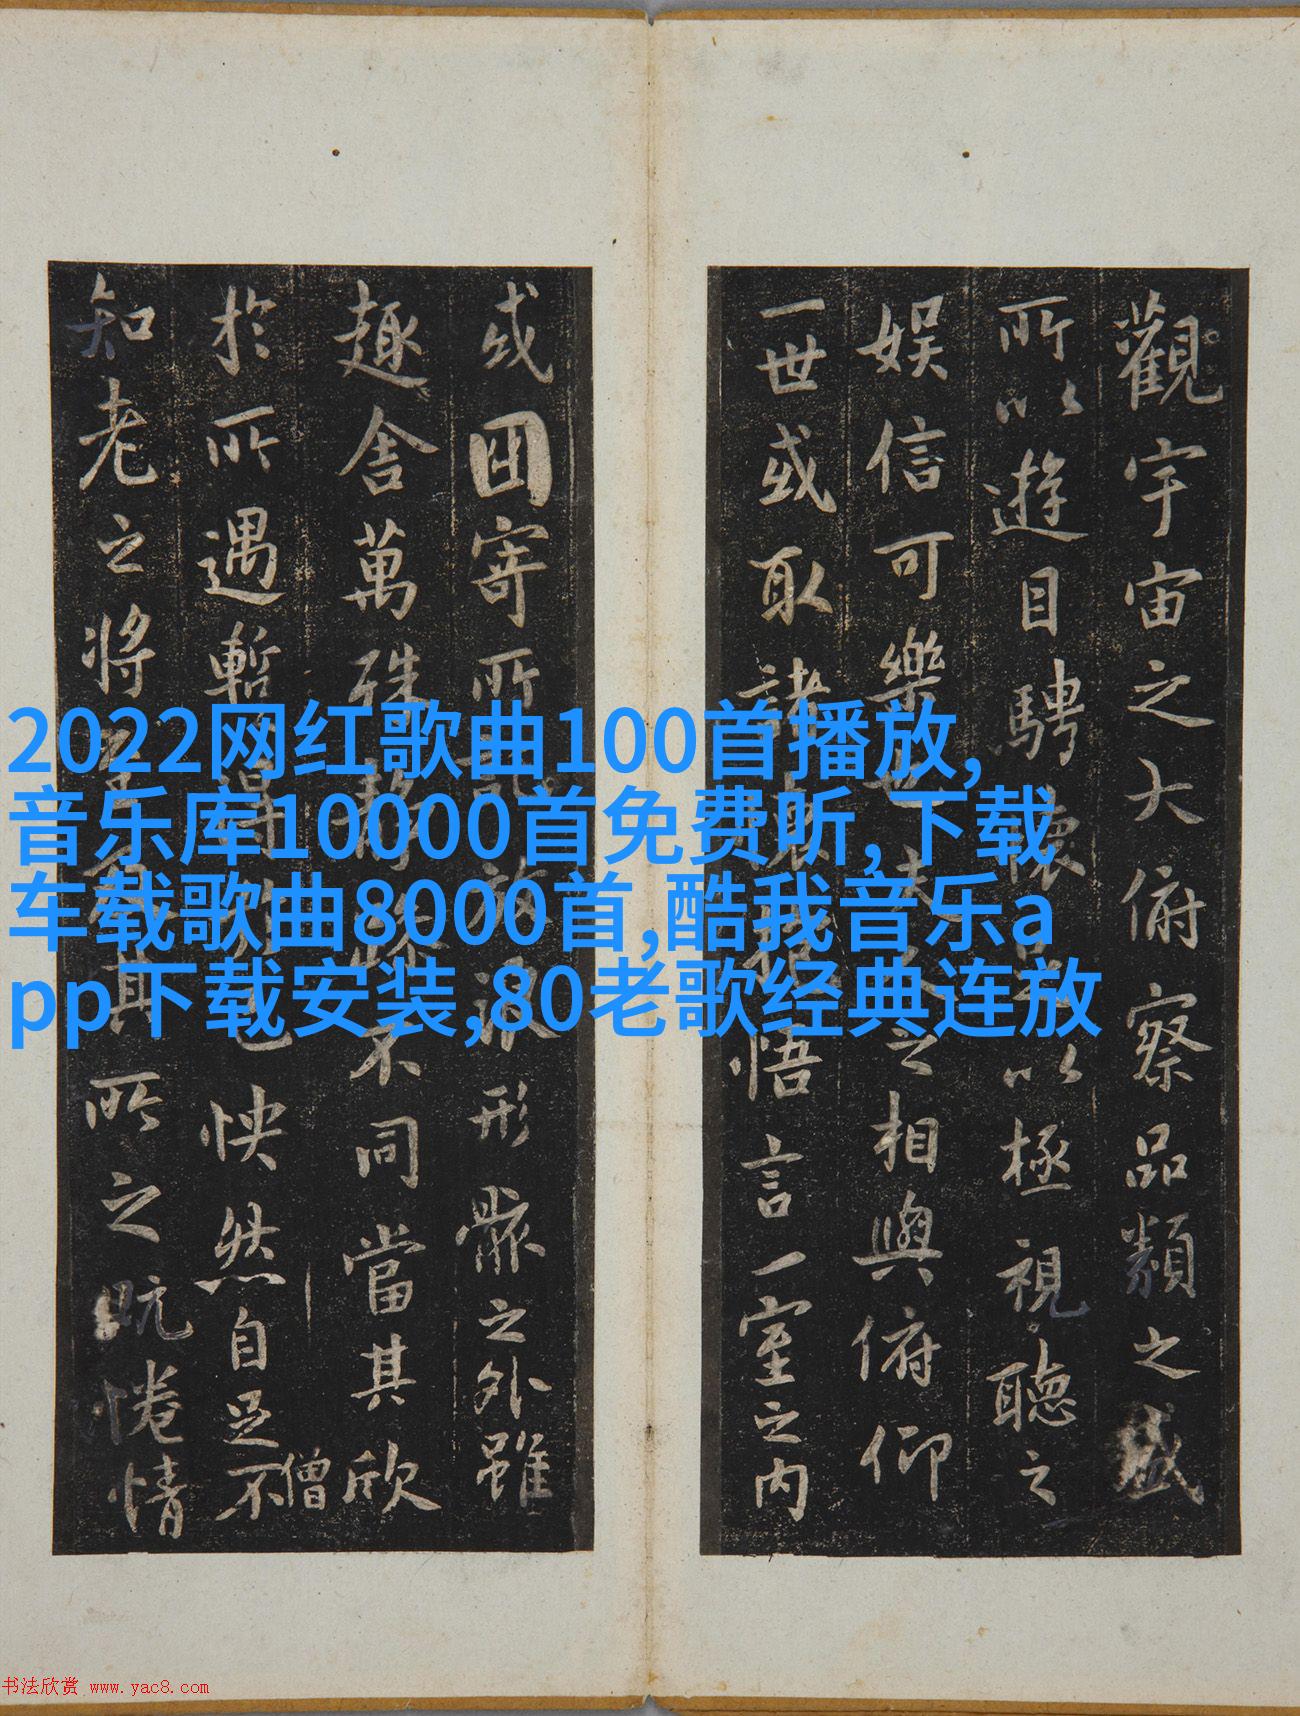 2022网红歌曲100首播放,
音乐库10000首免费听,下载
车载歌曲8000首,酷我音乐a
pp下载安装,80老歌经典连放
觀宇宙之大俯察品類之盛
所以遊目騁懷足以極視聽之
娛信可樂也夫人之相與俯仰
一世或取諸懷抱悟言一室之內
或因寄所託放浪形骸之外雖
趣舍萬殊靜躁不同當其欣
於所遇暫得於己怏然自足不
僧
知老之將至及其所之既惓情
书法欣赏 www.yac8.com